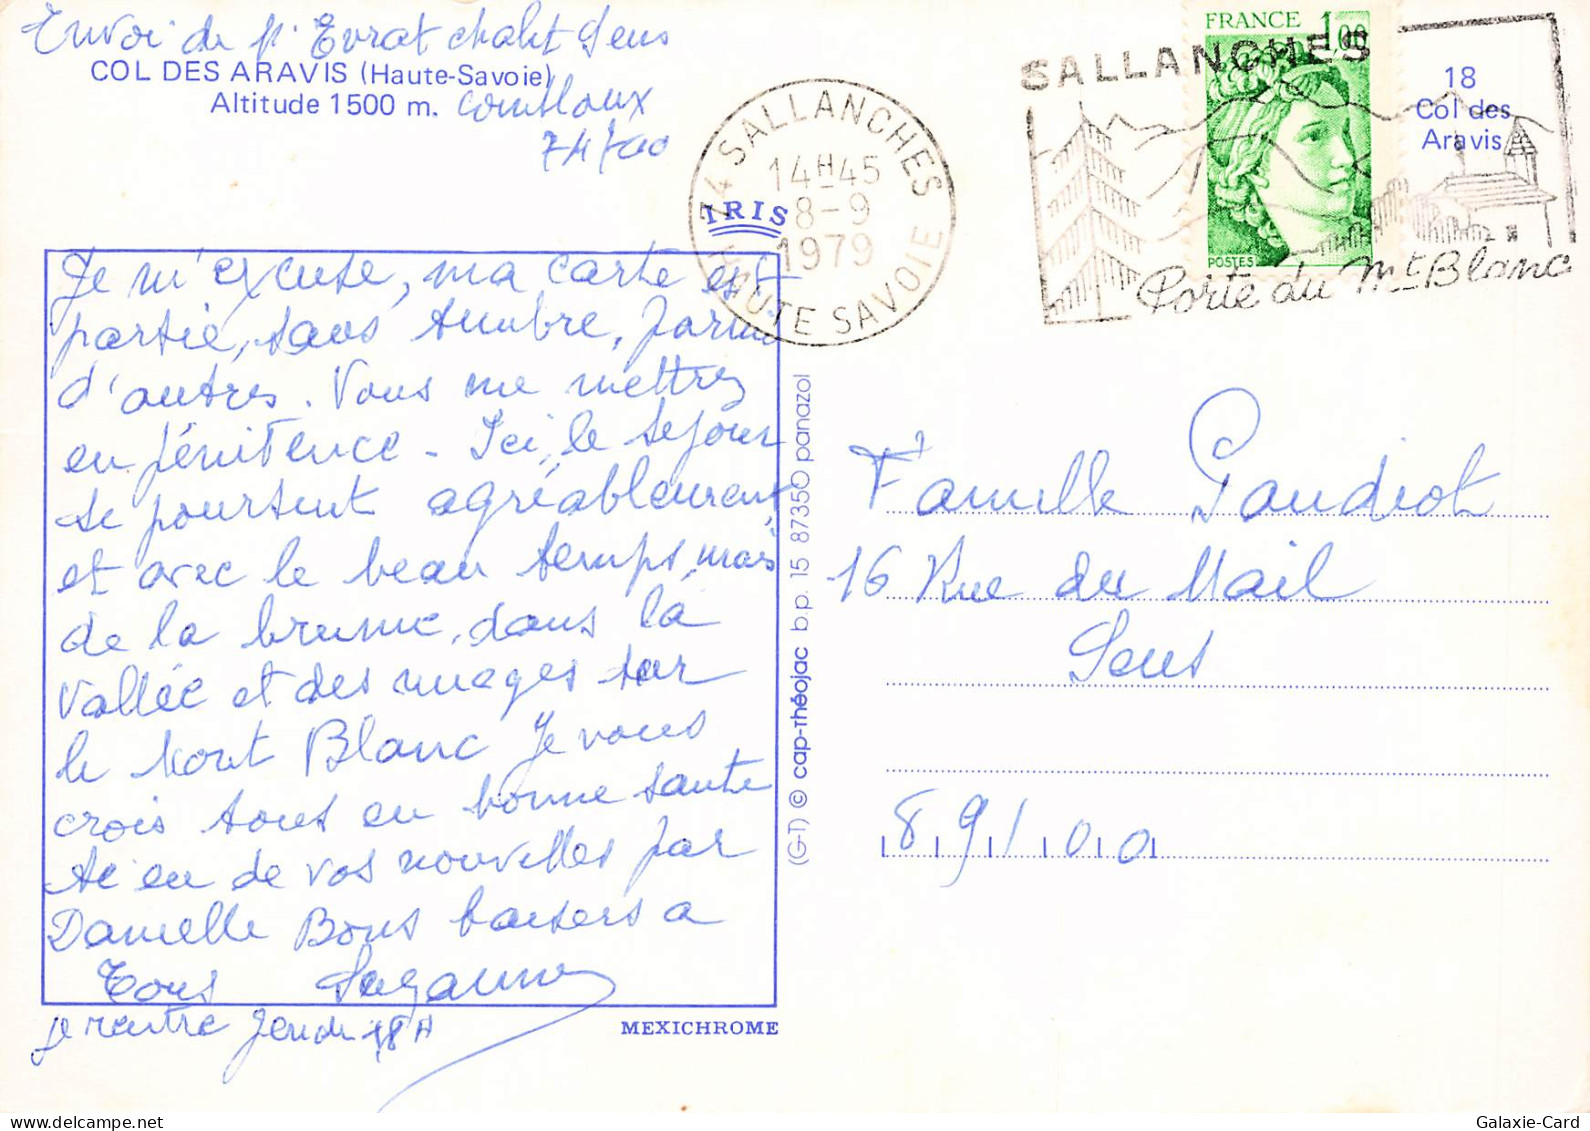 Envoi de p. Evrat chalet Sens
COL DES ARAVIS (Haute-Savoie)
Altitude 1500 m.
Combloux
74700
IRIS
74 SALLANCHES
14H45
8-9
1979
HAUTE SAVOIE
FRANCE 1,00
POSTES
SALLANCHES
Porte du Mt Blanc
18
Col des
Aravis
Je m'excuse, ma carte est
partie, sans timbre, parmi
d'autres. Vous me mettrez
en pénitence - Ici, le séjour
se poursuit agréablement,
et avec le beau temps, mais
de la brume, dans la
vallée et des nuages sur
le Mont Blanc Je vous
crois tous en bonne santé
ai eu de vos nouvelles par
Danielle Bons baisers a
Tous Suzanne
je rentre Jeudi 18 H
MEXICHROME
(G-T) © cap-théojac b.p. 15 87350 panazol
Famille Gaudiot
16 Rue du Mail
Sens
89100
Galaxie-Card